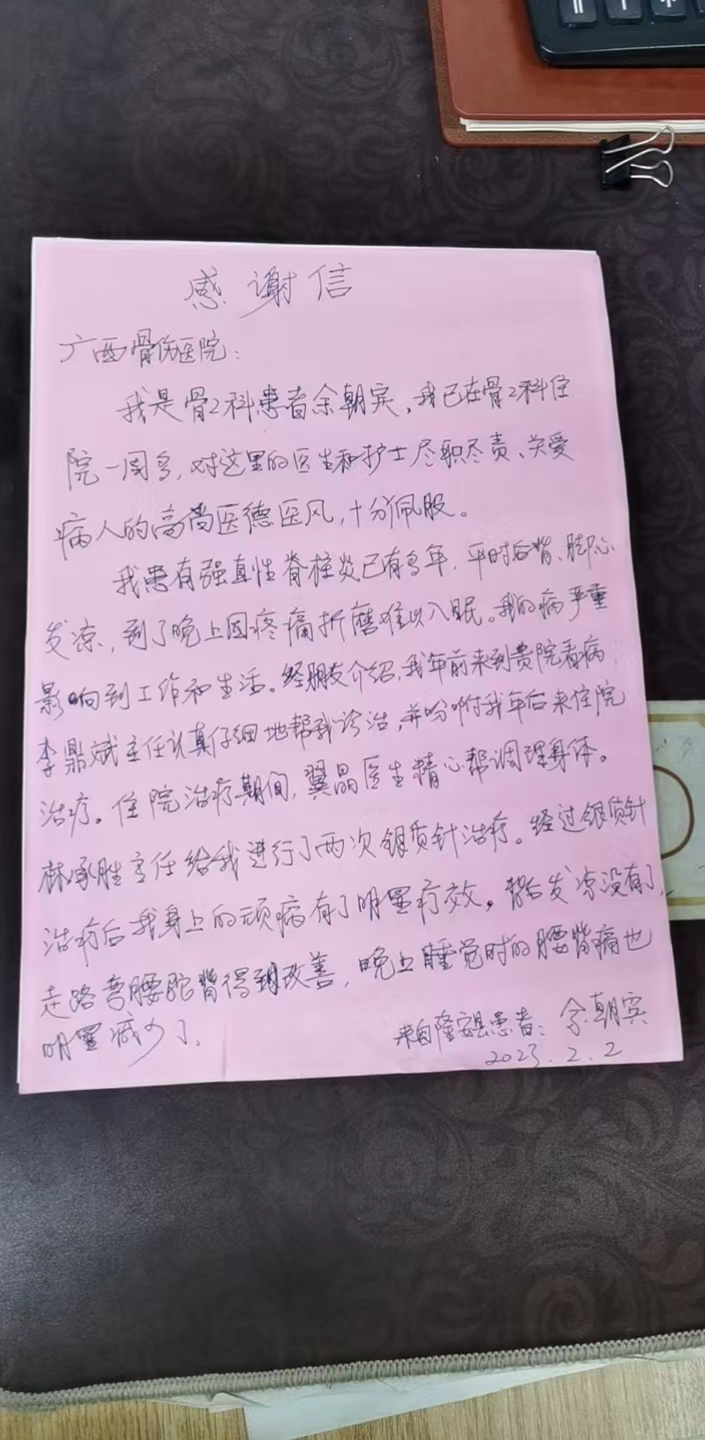 感谢信
广西骨伤医院：
我是骨2科患者余朝宾，我已在骨2科住
院一周多，对这里的医生和护士尽职尽责、关爱
病人的高尚医德医风，十分佩服。
我患有强直性脊柱炎已有多年，平时后背、脚心
发凉，到了晚上因疼痛折磨难以入眠。我的病严重
影响到工作和生活。经朋友介绍，我年前来到贵院看病，
李鼎斌主任认真仔细地帮我诊治，并吩咐我年后来住院
治疗。住院治疗期间，翼晶医生精心帮调理身体。
林承胜主任给我进行了两次银质针治疗。经过银质针
治疗后我身上的顽病有了明显疗效，背后发凉没有了，
走路弯腰驼背得到改善，晚上睡觉时的腰背痛也
明显减少了。
来自隆安县患者：余朝宾
2023.2.2